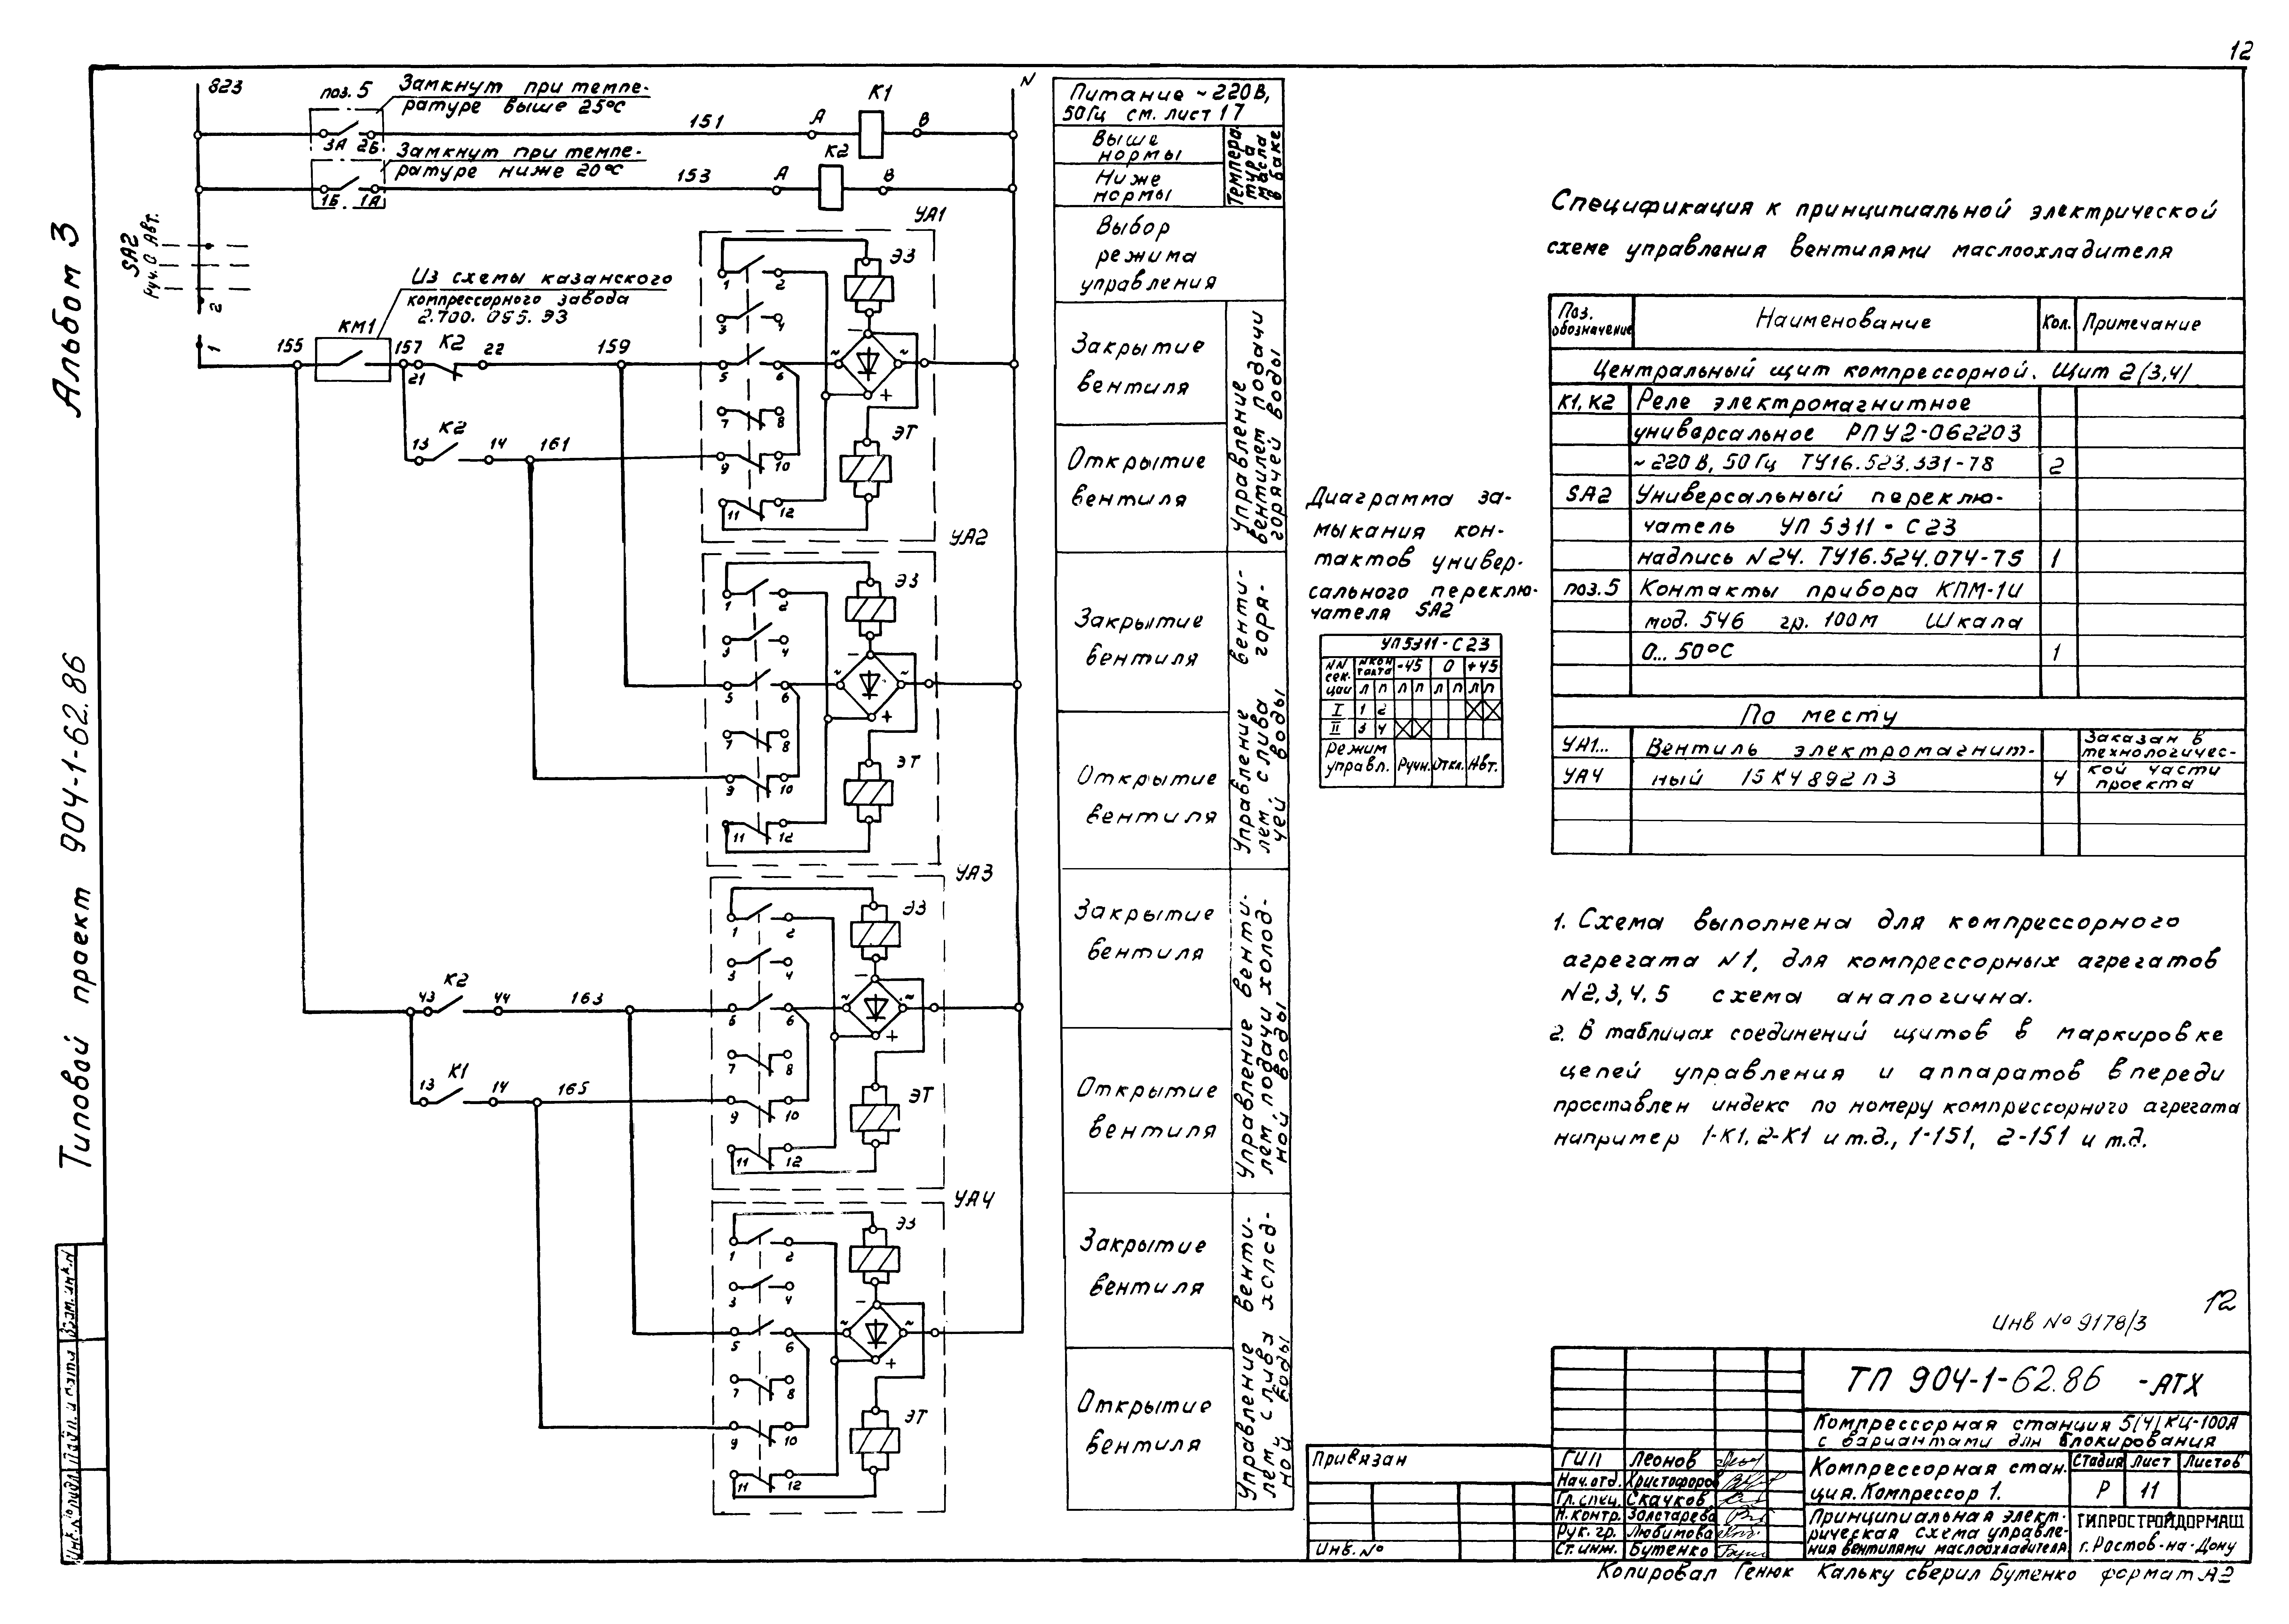 12
Альбом 3
Типовой проект 904-1-62.86
823
поз. 5
Замкнут при темпе-
ратуре выше 25°С
3А 2Б
151
А
К1
В
N
Замкнут при темпе-
ратуре ниже 20°С
1Б 1А
153
А
К2
В
SA2
Руч. 0 Авт.
2
1
Из схемы казанского
компрессорного завода
2.700.095.ЭЗ
155
КМ1
157
К2
21
22
159
К2
13
14
161
УА1
ЭЗ
1 2
3 4
5 6
7 8
9 10
11 12
~ ~
− +
ЭТ
УА2
ЭЗ
1 2
3 4
5 6
7 8
9 10
11 12
~ ~
− +
ЭТ
УА3
43
К2
44
163
13
К1
14
165
ЭЗ
1 2
3 4
6 6
7 8
9 10
11 12
~ ~
− +
ЭТ
УА4
ЭЗ
1 2
3 4
5 6
7 8
9 10
11 12
~ ~
− +
ЭТ
Питание ~220В,
50Гц см. лист 17
Выше
нормы
Ниже
нормы
Темпера
тура
масла
в баке
Выбор
режима
управления
Закрытие
вентиля
Открытие
вентиля
Управление
вентилем подачи
горячей воды
Закрытие
вентиля
Открытие
вентиля
Управление венти-
лем слива горя-
чей воды
Закрытие
вентиля
Открытие
вентиля
Управление венти-
лем подачи холод-
ной воды
Закрытие
вентиля
Открытие
вентиля
Управление венти-
лем слива холод-
ной воды
Диаграмма за-
мыкания кон-
тактов универ-
сального переклю-
чателя SA2
УП5311-С23
NN сек. ции
N кон такта
-45 0 +45
Л П Л П Л П Л П
I 1 2
II 3 4
Режим
управл. Ручн. Откл. Авт.
Спецификация к принципиальной электрической
схеме управления вентилями маслоохладителя
Поз. обозначение Наименование Кол. Примечание
Центральный щит компрессорной. Щит 2(3,4)
К1, К2 Реле электромагнитное
универсальное РПУ2-062203
~220В, 50Гц ТУ16.523.331-78 2
SA2 Универсальный переклю-
чатель УП 5311-С23
надпись N24. ТУ16.524.074-75 1
поз.5 Контакты прибора КПМ-1И
мод. 546 гр. 100М Шкала
0...50°С 1
По месту
УА1... Вентиль электромагнит- Заказан в технологичес-
УА4 ный 15КЧ892П3 4 кой части проекта
1. Схема выполнена для компрессорного
агрегата N1, для компрессорных агрегатов
N2,3,4,5 схема аналогична.
2. В таблицах соединений щитов в маркировке
цепей управления и аппаратов впереди
проставлен индекс по номеру компрессорного агрегата
например 1-К1, 2-К1 и т.д., 1-151, 2-151 и т.д.
12
Инв № 9178/3
ТП 904-1-62.86 -АТХ
Компрессорная станция 5(4)КЦ-100А
с вариантами для блокирования
ГИП Леонов
Нач. отд. Христофоров
Гл. спец. Скачков
Н.контр. Золотарева
Рук. гр. Любимова
Ст. инж. Бутенко
Компрессорная стан.
ция. Компрессор 1.
Стадия Лист Листов
Р 11
Принципиальная элект-
рическая схема управле-
ния вентилями маслоохладителя
ГИПРОСТРОЙДОРМАШ
г. Ростов-на-Дону
Привязан
Инв. №
Инв. № подл. Подп. и дата Взам. инв. N
Копировал Генюк Кальку сверил Бутенко формат А2